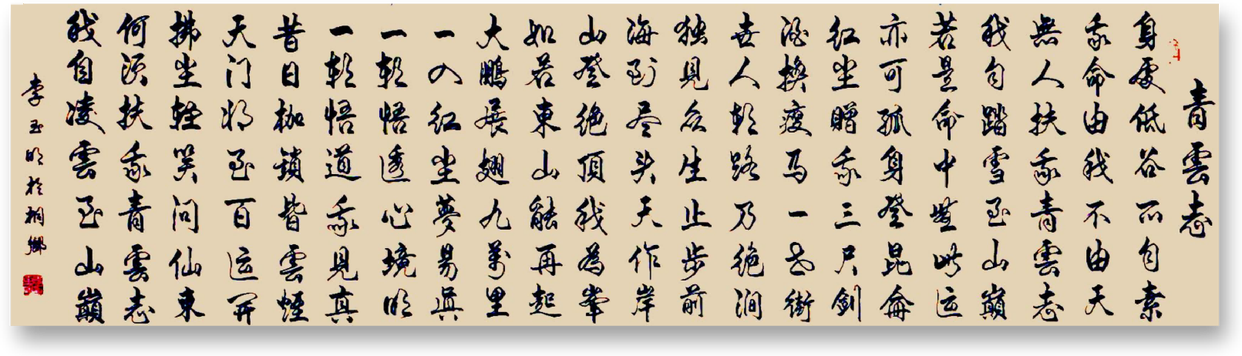 青雲志
身處低谷而自素
我命由我不由天
無人扶我青雲志
我自踏雪至山巔
若是命中無此运
亦可孤身登昆侖
红尘贈我三尺劍
酒換瘦马一世街
世人朝路乃绝澗
独見众生止步前
海到尽头天作岸
山登绝頂我為峯
如若東山能再起
大鵬展翅九萬里
一入红尘夢易真
一朝悟透心境明
一朝悟道我見真
昔日枷鎖皆雲煙
天门将至百运開
拂尘轻笑问仙来
何须扶我青雲志
我自凌雲至山巔
李玉明於桐鄉